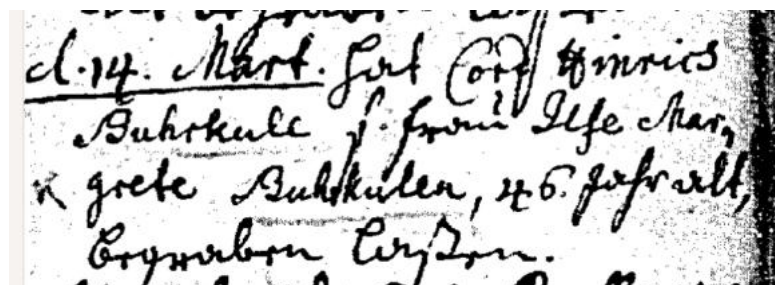 d. 14. Mart. hat Cord Hinrich
Buhrkule s. frau Ilse Mar-
grete Buhrkulen, 46. Jahr alt,
begraben laßen.